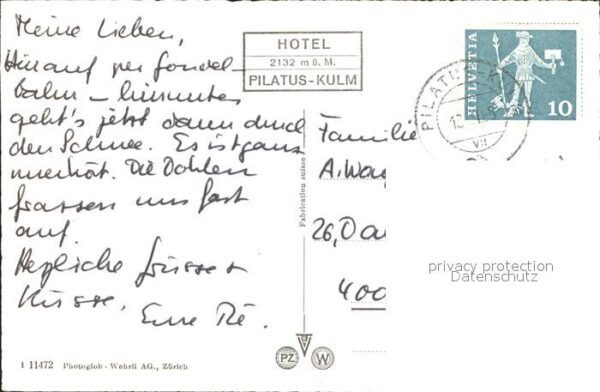 Meine Lieben,
Hinauf per Gondel-
bahn – hinunter
geht's jetzt dann durch
den Schnee. Es ist ganz
unerhört. Die Dohlen
frassen uns fast
auf.
Herzliche Grüsse +
Küsse,
Eure
HOTEL
2132 m ü. M.
PILATUS-KULM
HELVETIA
10
PILATUS-K
VII
Familie
A. Wag
26, Da
400
Fabrication suisse
privacy protection
Datenschutz
PZ W
1 11472 Photoglob - Wehrli AG., Zürich